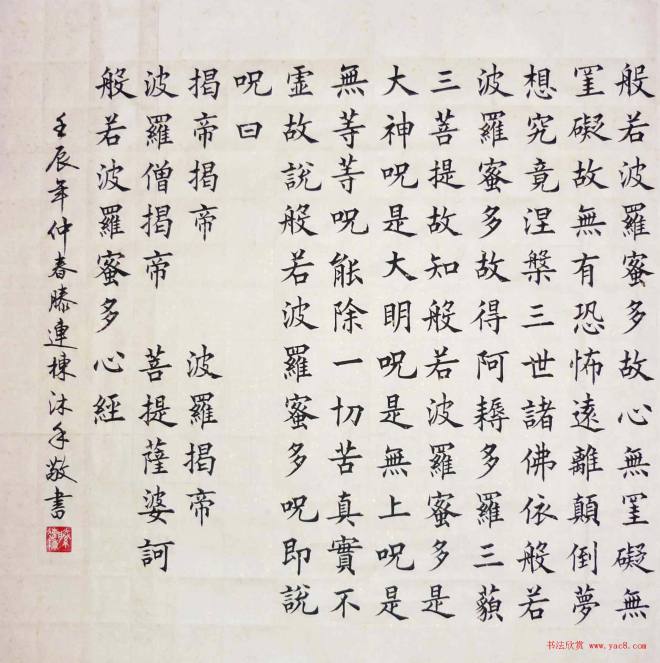 般若波羅蜜多故心無罣礙無
罣礙故無有恐怖遠離顛倒夢
想究竟涅槃三世諸佛依般若
波羅蜜多故得阿耨多羅三藐
三菩提故知般若波羅蜜多是
大神呪是大明呪是無上呪是
無等等呪能除一切苦真實不
虛故說般若波羅蜜多呪即說
呪曰
揭帝揭帝 波羅揭帝
波羅僧揭帝 菩提薩婆訶
般若波羅蜜多心經
壬辰年仲春滕連棟沐手敬書
书法欣赏 www.yac8.com